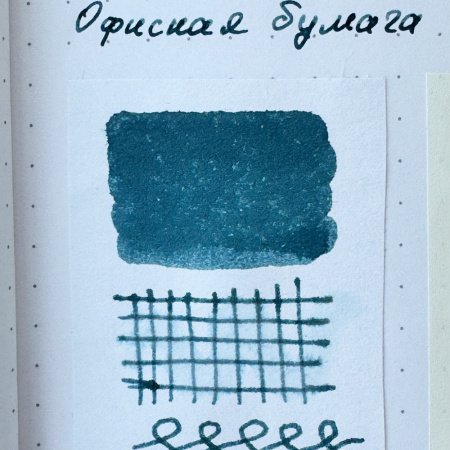 Офисная бумага